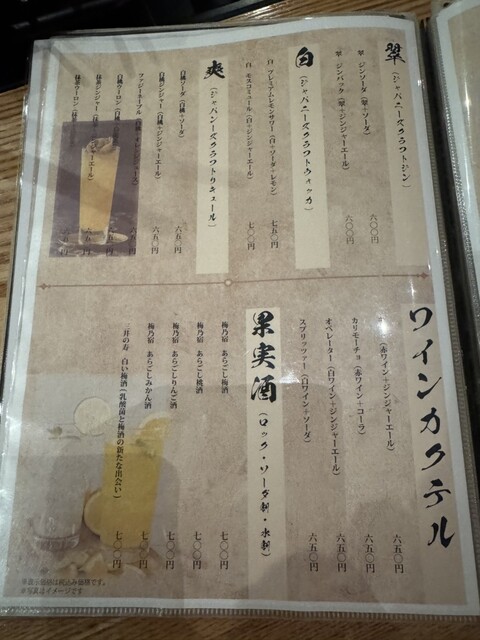 翠(ジャパニーズクラフトジン)
翠 ジンソーダ(翠+ソーダ) 六〇〇円
翠 ジンバック(翠+ジンジャーエール) 六〇〇円
白(ジャパニーズクラフトウォッカ)
白 プレミアムレモンサワー(白+ソーダ+レモン) 七五〇円
白 モスコミュール(白+ジンジャーエール) 七〇〇円
爽(ジャパニーズクラフトリキュール)
白桃ソーダ(白桃+ソーダ) 六五〇円
白桃ジンジャー(白桃+ジンジャーエール) 六五〇円
ファジーネーブル 六五〇円
白桃ウーロン 六五〇円
抹茶ジンジャー 六五〇円
抹茶ウーロン 六五〇円
ワインカクテル
(赤ワイン+ジンジャーエール) 六五〇円
カリモーチョ(赤ワイン+コーラ) 六五〇円
オペレーター(白ワイン+ジンジャーエール) 六五〇円
スプリッツァー(白ワイン+ソーダ) 六五〇円
果実酒(ロック・ソーダ割・水割)
梅乃宿 あらごし梅酒 七〇〇円
梅乃宿 あらごし桃酒 七〇〇円
梅乃宿 あらごしりんご酒 七〇〇円
梅乃宿 あらごしみかん酒 七〇〇円
三井の寿 白い梅酒(乳酸菌と梅酒の新たな出会い) 七〇〇円
※表示価格は税込み価格です。
※写真はイメージです。